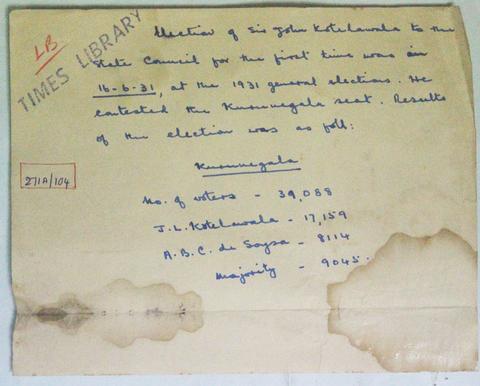 LB
TIMES LIBRARY
Election of Sir John Kotelawala to the
State Council for the first time was on
16-6-31, at the 1931 general elections. He
contested the Kurunegala seat. Results
of the election was as foll:
Kurunegala
271A/104
No. of voters - 39,088
J.L. Kotelawala - 17,159
A.B.C. de Soysa - 8114
Majority - 9045.